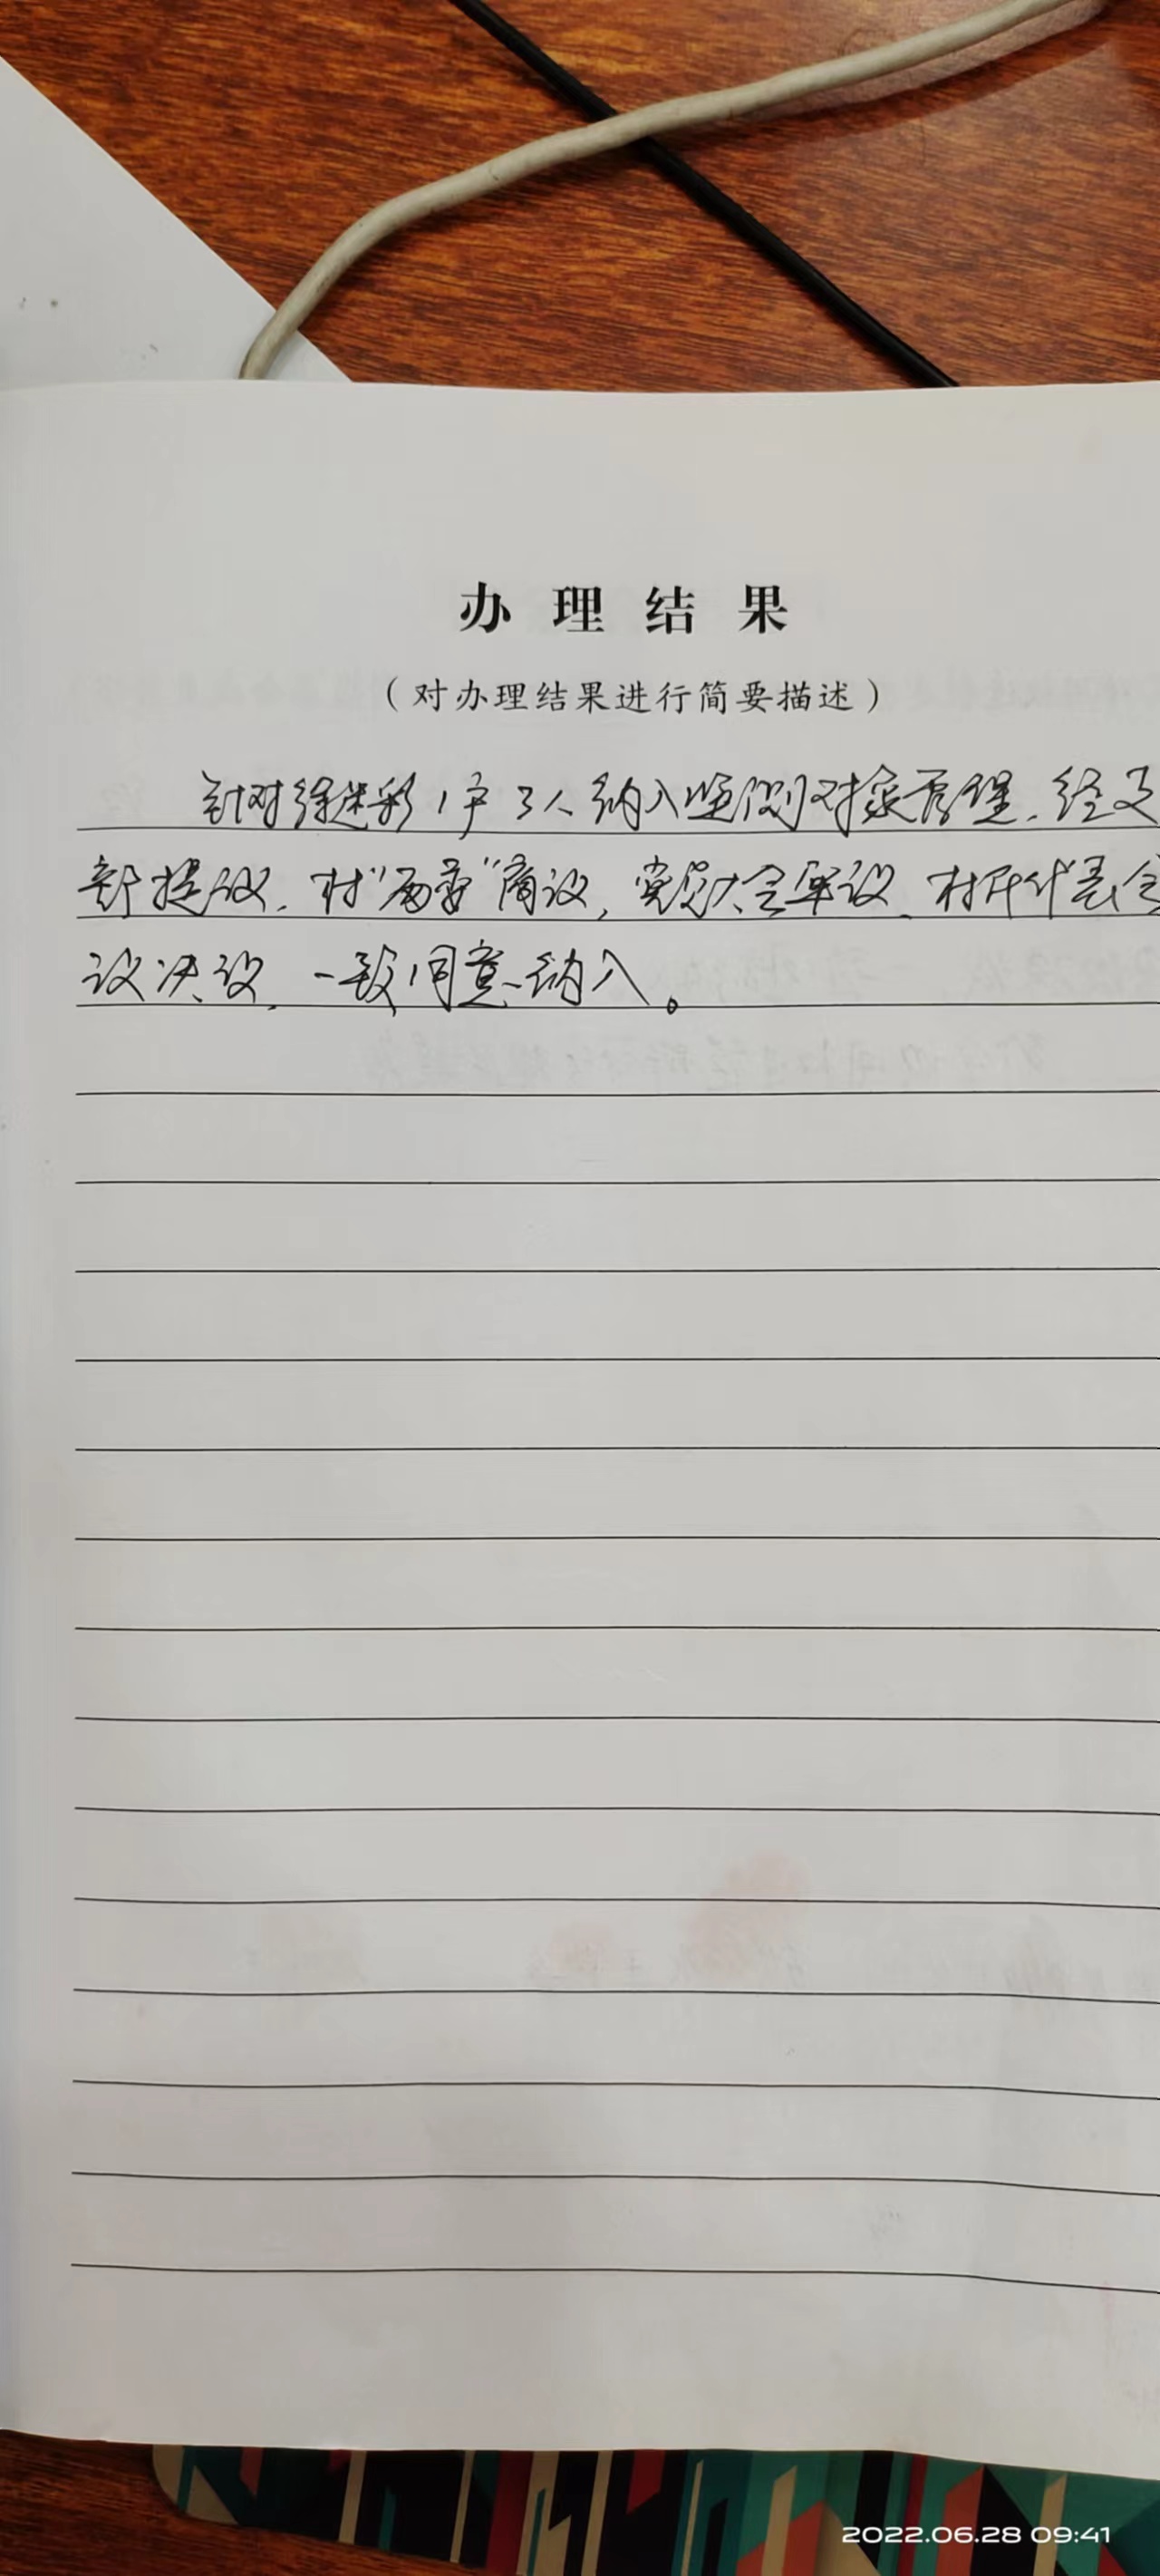 办理结果
（对办理结果进行简要描述）
针对徐迷彩1户3人纳入监测对象管理,经支
部提议,村“两委”商议,党员大会审议、村民代表会
议决议,一致同意纳入。
2022.06.28 09:41